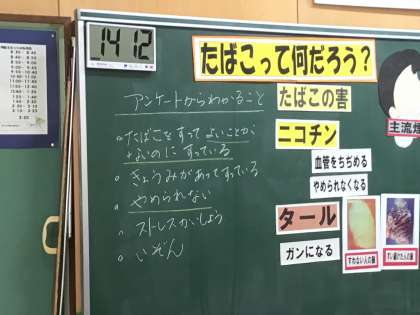 14 12
たばこって何だろう?
アンケートからわかること
たばこをすってよいことが
ないのにすっている
きょうみがあってすっている
やめられない
ストレスかいしょう
いぞん
たばこの害
ニコチン
血管をちぢめる
やめられなくなる
タール
ガンになる
主流煙
すわない人の肺
すい続けた人の肺